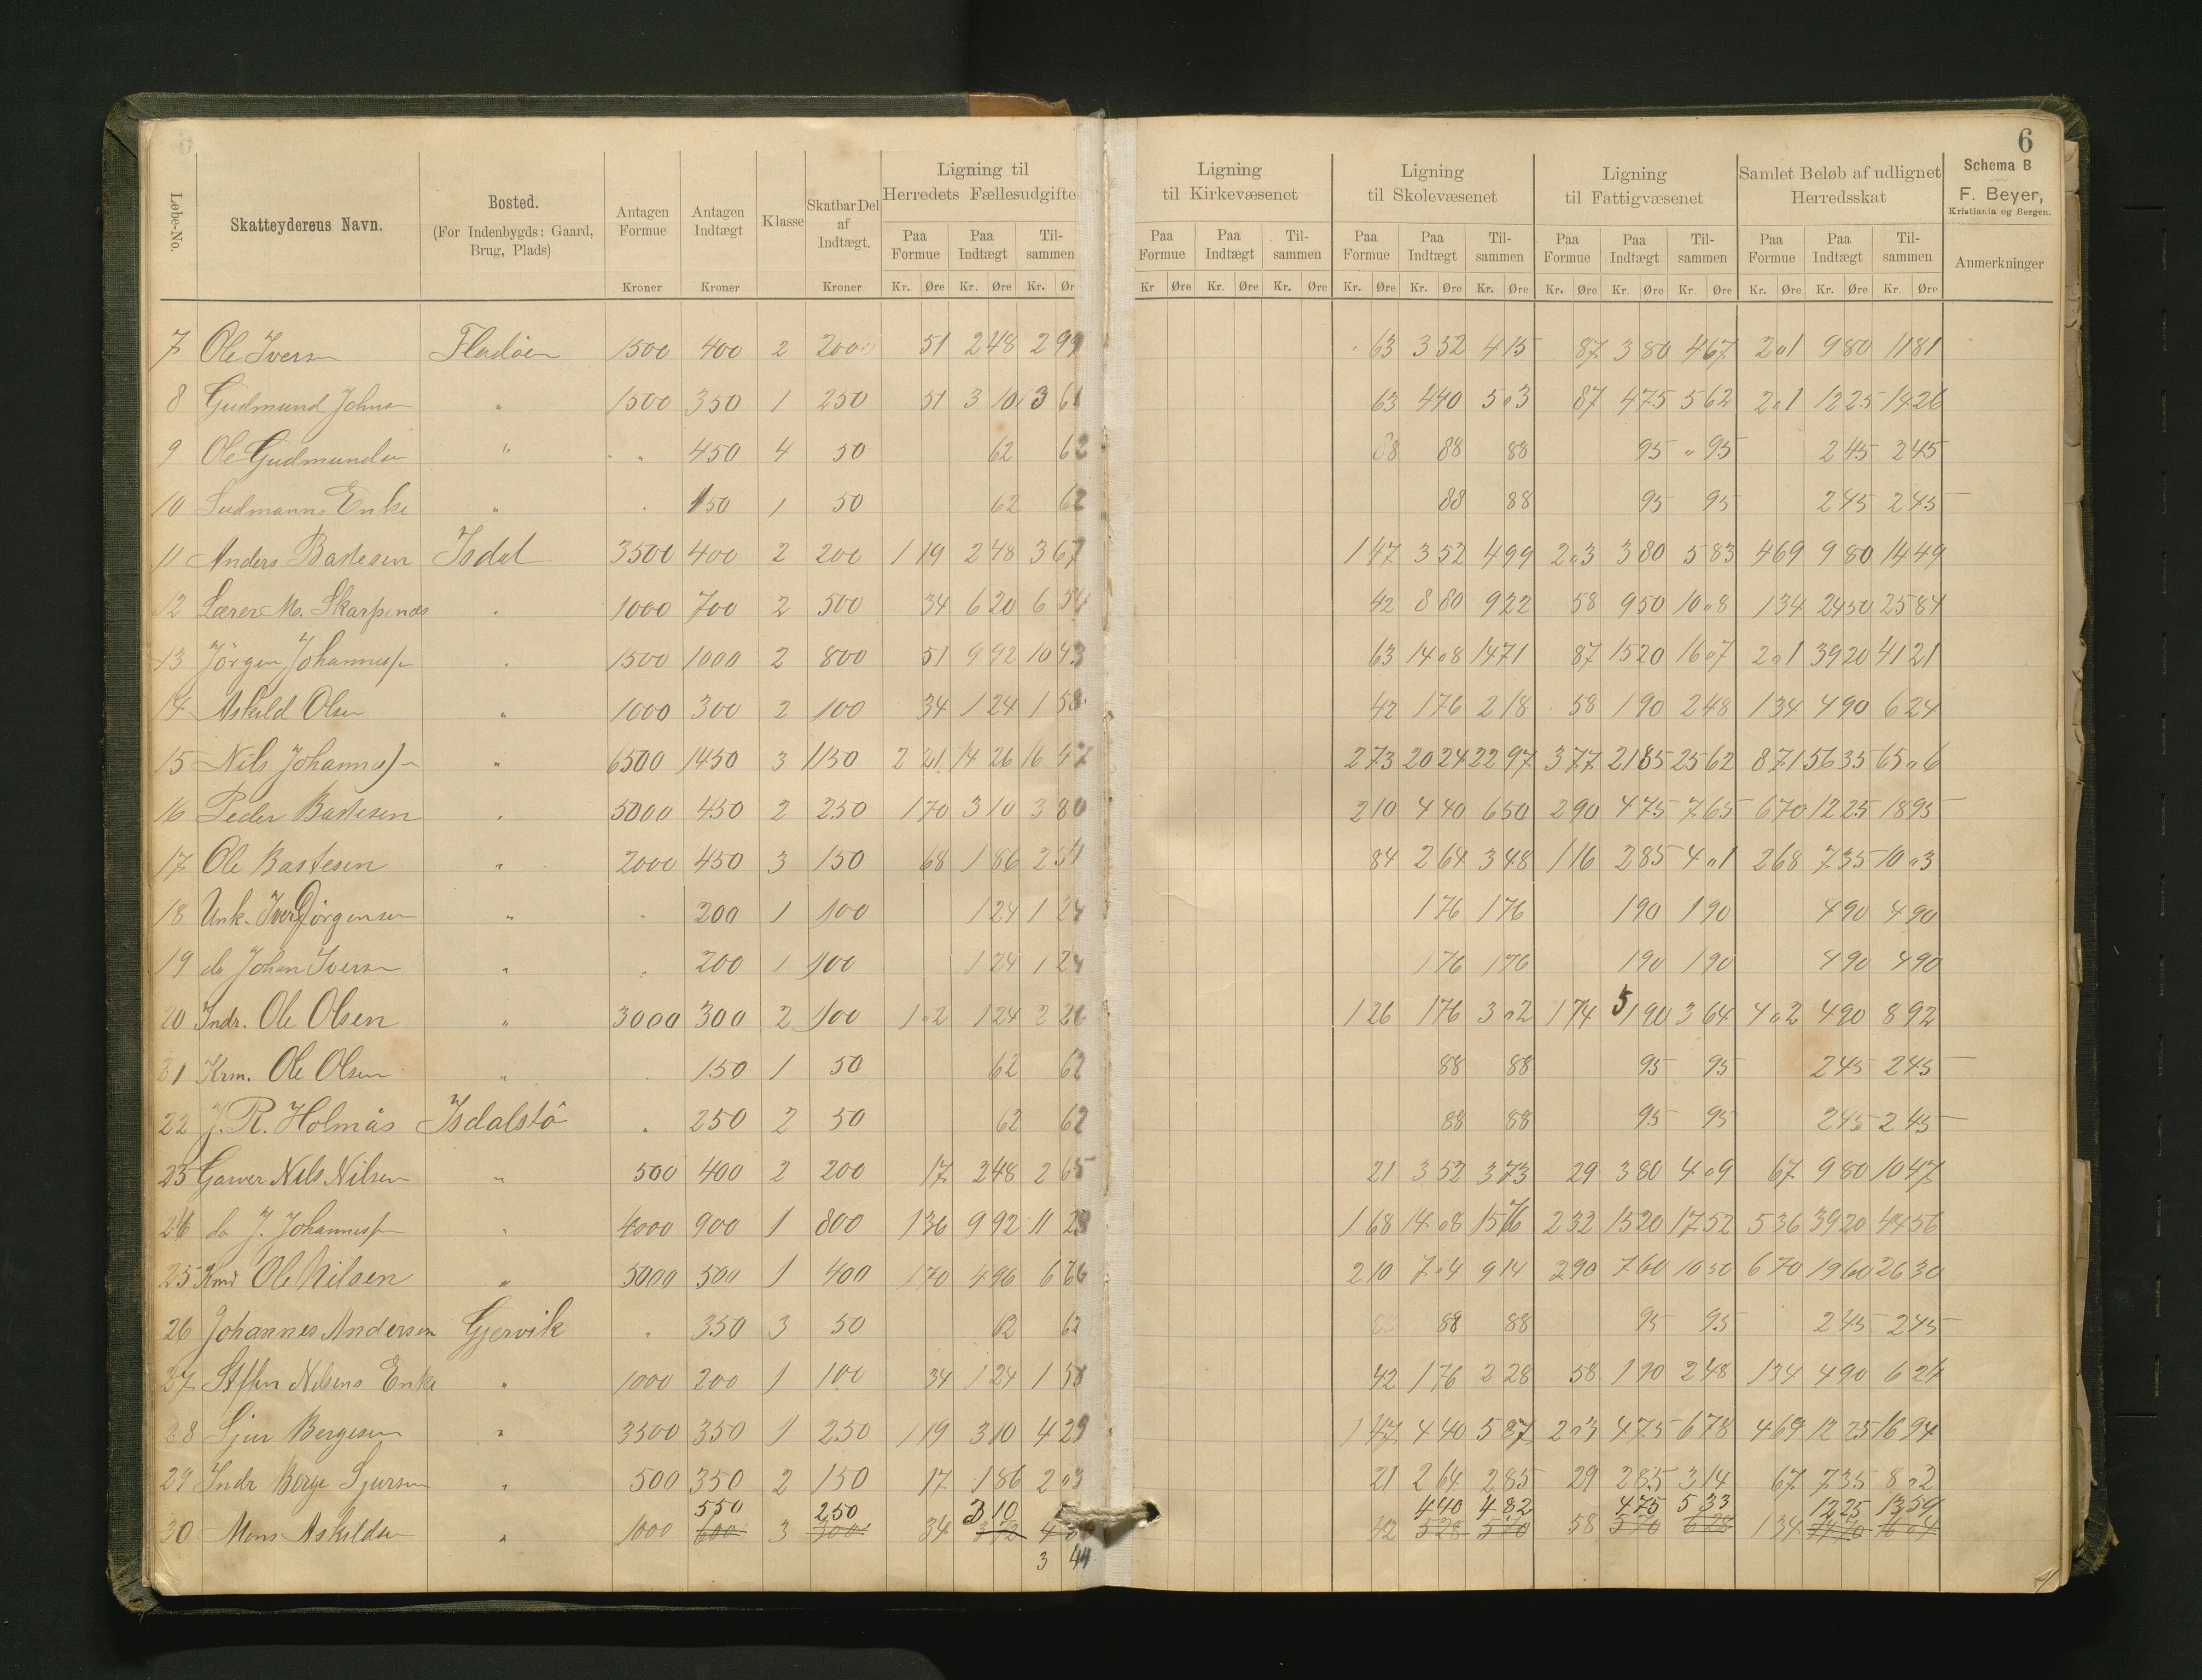 6
Schema B
F. Beyer,
Kristiania og Bergen.
Løbe-No. | Skatteyderens Navn. | Bosted. (For Indenbygds: Gaard, Brug, Plads) | Antagen Formue Kroner | Antagen Indtægt Kroner | Klasse | Skatbar Del af Indtægt. Kroner | Ligning til Herredets Fællesudgifte | Ligning til Kirkevæsenet | Ligning til Skolevæsenet | Ligning til Fattigvæsenet | Samlet Beløb af udlignet Herredsskat | Anmerkninger
Paa Formue | Paa Indtægt | Til- sammen | Paa Formue | Paa Indtægt | Til- sammen | Paa Formue | Paa Indtægt | Til- sammen | Paa Formue | Paa Indtægt | Til- sammen | Paa Formue | Paa Indtægt | Til- sammen
Kr. Øre Kr. Øre Kr. Ør | Kr Øre Kr. Øre Kr. Øre | Kr. Øre Kr. Øre Kr. Øre | Kr. Øre Kr. Øre Kr. Øre | Kr. Øre Kr. Øre Kr. Øre
7 Ole Iversn Fladöen 1500 400 2 2000 51 248 299 63 352 415 87 380 467 201 980 1181
8 Gudmund Johns " 1500 350 1 250 51 310 361 63 440 503 87 475 562 201 1225 1426
9 Ole Gudmundsn " " 450 4 50 62 62 88 88 88 95 " 95 245 245
10 Enke " 150 1 50 62 62 88 88 95 95 245 245
11 Anders Bastesen Isdal 3500 400 2 200 119 248 367 147 352 499 203 380 583 469 980 1449
12 Lærer M. Skarpenes " 1000 700 2 500 34 620 654 42 880 922 58 950 1008 134 2450 2584
13 Jörgen Johannes " 1500 1000 2 800 51 992 1043 63 1408 1471 87 1520 1607 201 3920 4121
14 Askild Olsen " 1000 300 2 100 34 124 158 42 176 218 58 190 248 134 490 624
15 Nils Johannes " 6500 1450 3 1150 221 1426 1647 273 2024 2297 377 2185 2562 871 5635 6506
16 Peder Bastesen " 5000 450 2 250 170 310 380 210 440 650 290 475 765 670 1225 1895
17 Ole Bastesen " 2000 450 3 150 68 186 254 84 264 348 116 285 401 268 735 1003
18 Unk. Iver Jörgensen " " 200 1 100 124 124 176 176 190 190 490 490
19 do Johan Iversn " " 200 1 100 124 124 176 176 190 190 490 490
20 Indr. Ole Olsen " 3000 300 2 100 102 124 226 126 176 302 174 5 190 364 402 490 892
21 Krm. Ole Olsen " " 150 1 50 62 62 88 88 95 95 245 245
22 J. R. Holmås Isdalstö " 250 2 50 62 62 88 88 95 95 245 245
23 Garver Nils Nilsen " 500 400 2 200 17 248 265 21 352 373 29 380 409 67 980 1047
24 do J. Johannes " 4000 900 1 800 136 992 1128 168 1408 1576 232 1520 1752 536 3920 4456
25 Ole Nilsen " 5000 500 1 400 170 496 666 210 704 914 290 760 1050 670 1960 2630
26 Johannes Andersen Gjervik " 350 3 50 62 62 88 88 95 95 245 245
27 Steffen Nilsens Enke " 1000 200 1 100 34 124 158 42 176 228 58 190 248 134 490 624
28 Sjur Bergesen " 3500 350 1 250 119 310 429 147 440 587 203 475 678 469 1225 1694
29 Indr Berge Sjursen " 500 350 2 150 17 186 203 21 264 285 29 285 314 67 735 802
550 250 310 440 482 475 533 1225 1359
30 Mons Askildsn " 1000 600 3 300 34 372 42 528 570 58 570 628 134 1470 1604
3 44